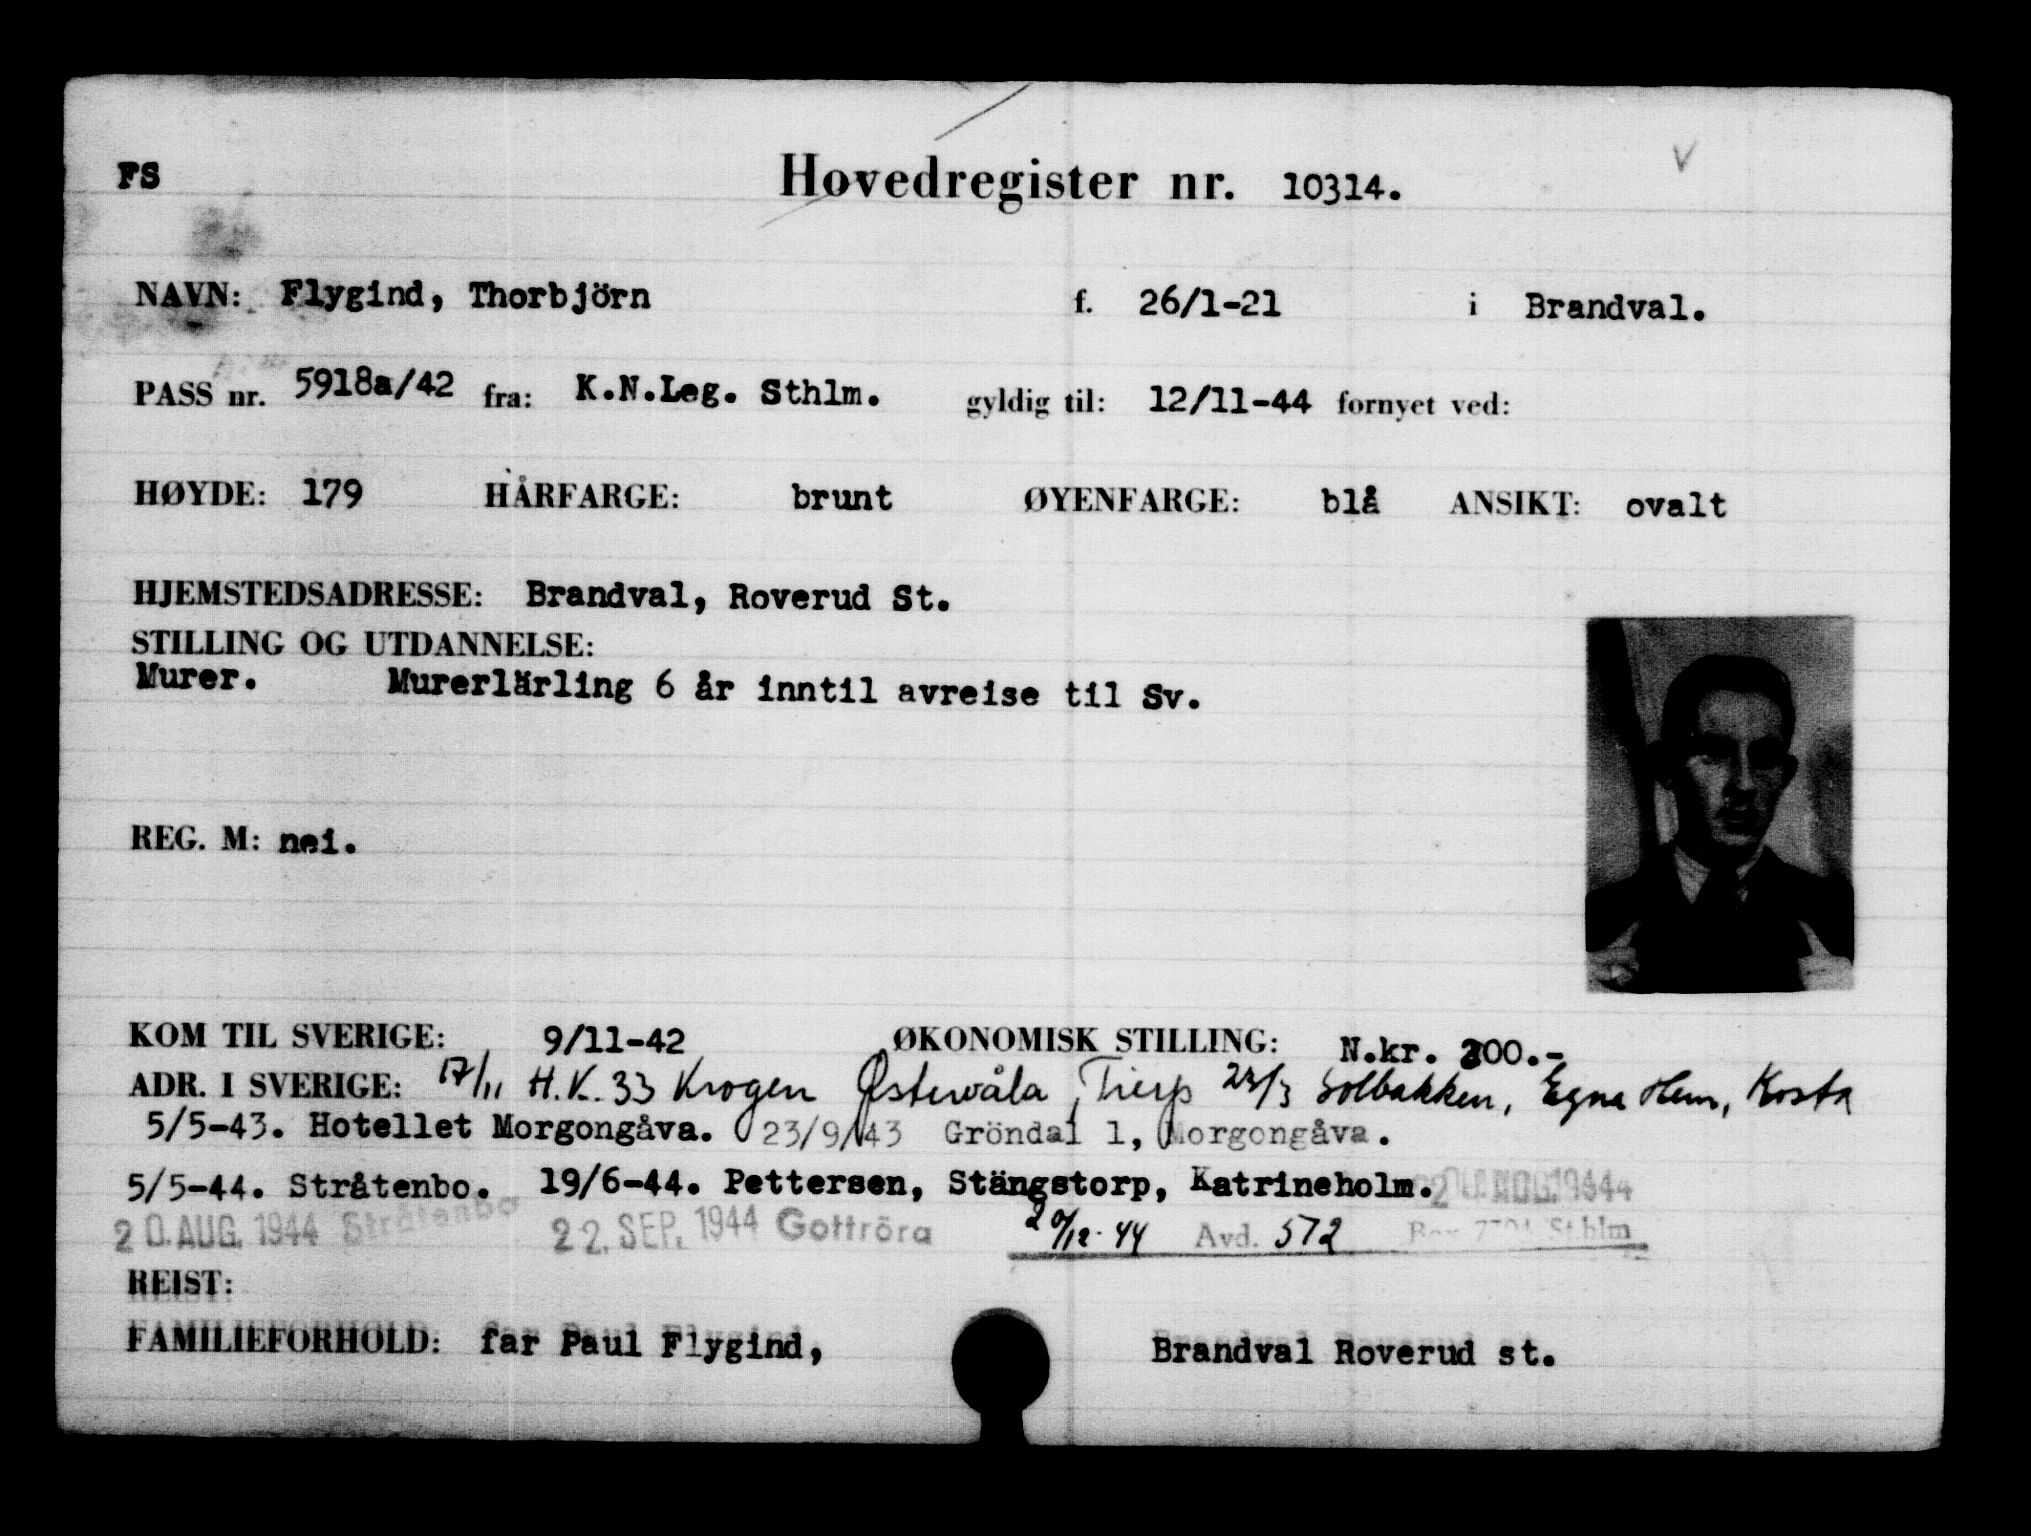 FS
Hovedregister nr. 10314.
NAVN: Flygind, Thorbjörn f. 26/1-21 i Brandval.
PASS nr. 5918a/42 fra: K.N.Leg. Sthlm. gyldig til: 12/11-44 fornyet ved:
HØYDE: 179 HÅRFARGE: brunt ØYENFARGE: blå ANSIKT: ovalt
HJEMSTEDSADRESSE: Brandval, Roverud St.
STILLING OG UTDANNELSE:
Murer. Murerlärling 6 år inntil avreise til Sv.
REG. M: nei.
KOM TIL SVERIGE: 9/11-42 ØKONOMISK STILLING: N.kr. 200.-
ADR. I SVERIGE: 17/11 H.K. 33 Krogen Østervåla, Tierp 23/3 Solbakken, Egna Hem, Kosta
5/5-43. Hotellet Morgongåva. 23/9/43 Gröndal 1, Morgongåva.
5/5-44. Stråtenbo. 19/6-44. Pettersen, Stängstorp, Katrineholm. 20. AUG. 1944
20. AUG. 1944 Stråtenbo 22. SEP. 1944 Gottröra 20/12-44 Avd. 572 Sthlm
REIST:
FAMILIEFORHOLD: far Paul Flygind, Brandval Roverud st.